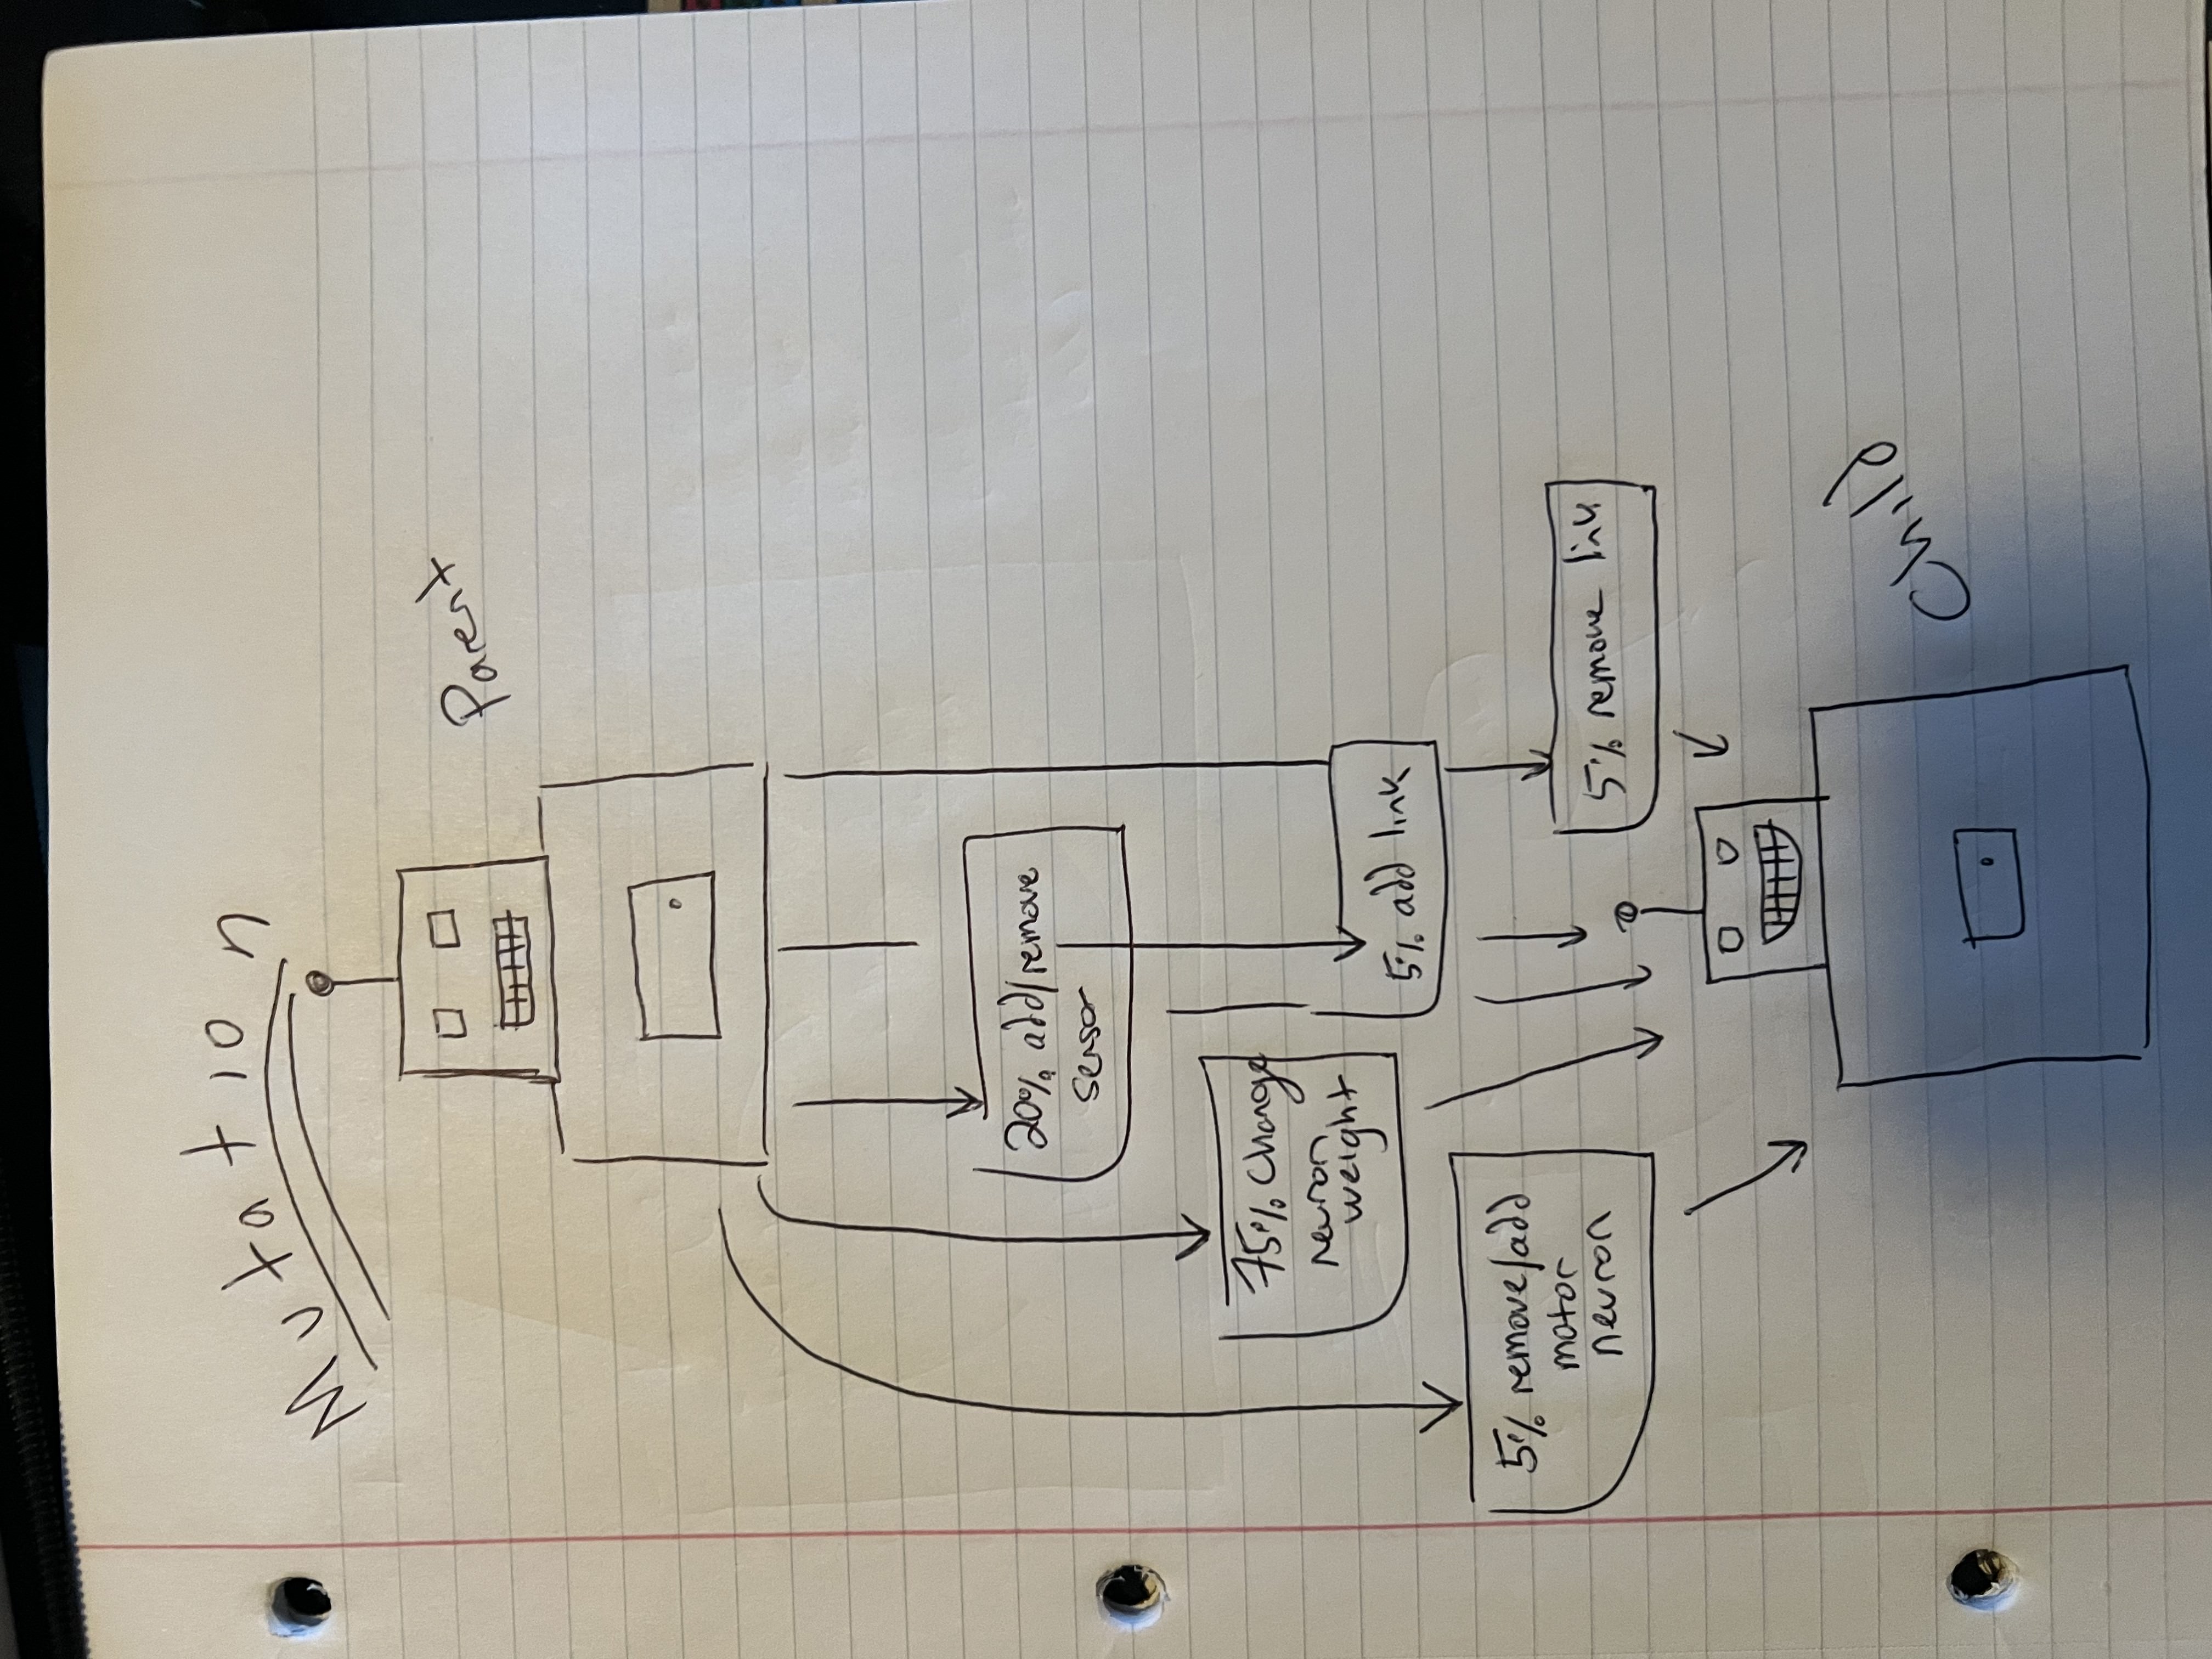 Mutation
Parent
20% add/remove
sensor
75% change
neuron
weight
5% add link
5% remove/add
motor
neuron
5% remove link
Child